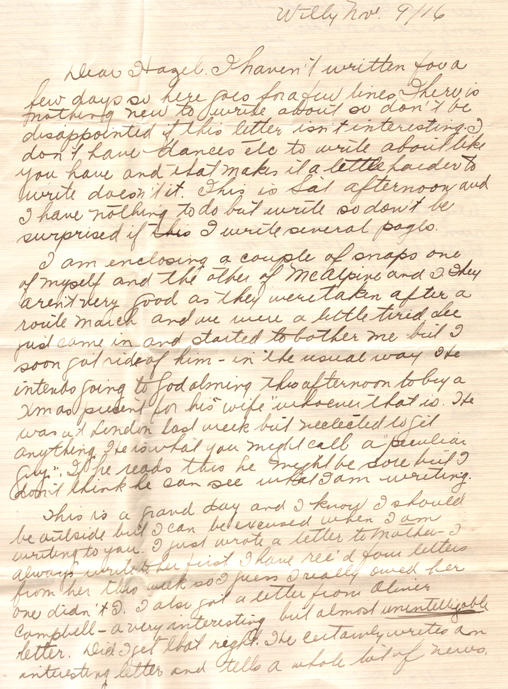 Willy Nov. 9/16
Dear Hazel. I haven't written for a
few days so here goes for a few lines. There is
nothing new to write about so don't be
disappointed if this letter isn't interesting. I
don't have dances etc to write about like
you have and that makes it a little harder to
write doesn't it. This is Sat afternoon and
I have nothing to do but write so don't be
surprised if this I write several pages.
I am enclosing a couple of snaps one
of myself and the other of McAlpine and I. They
aren't very good as they were taken after a
route march and we were a little tired. Lee
just came in and started to bother me but I
soon got ride of him - in the usual way. He
intends going to Godalming this afternoon to buy a
Xmas present for his "wife" whoever that is. He
was in London last week but neclected to git
anything. He is what you might call a "peculiar
guy". If he reads this he might be sore but I
don't think he can see what I am writing.
This is a grand day and I know I should
be outside but I can be excused when I am
writing to you. I just wrote a letter to Mother - I
always write to her first. I have rec'd four letters
from her this week so I guess I really owed her
one didn't I. I also got a letter from Oliver
Campbell - a very interesting but almost unintelligable
letter. Did I get that right. He certainly writes an
interesting letter and tells a whole lot of news.